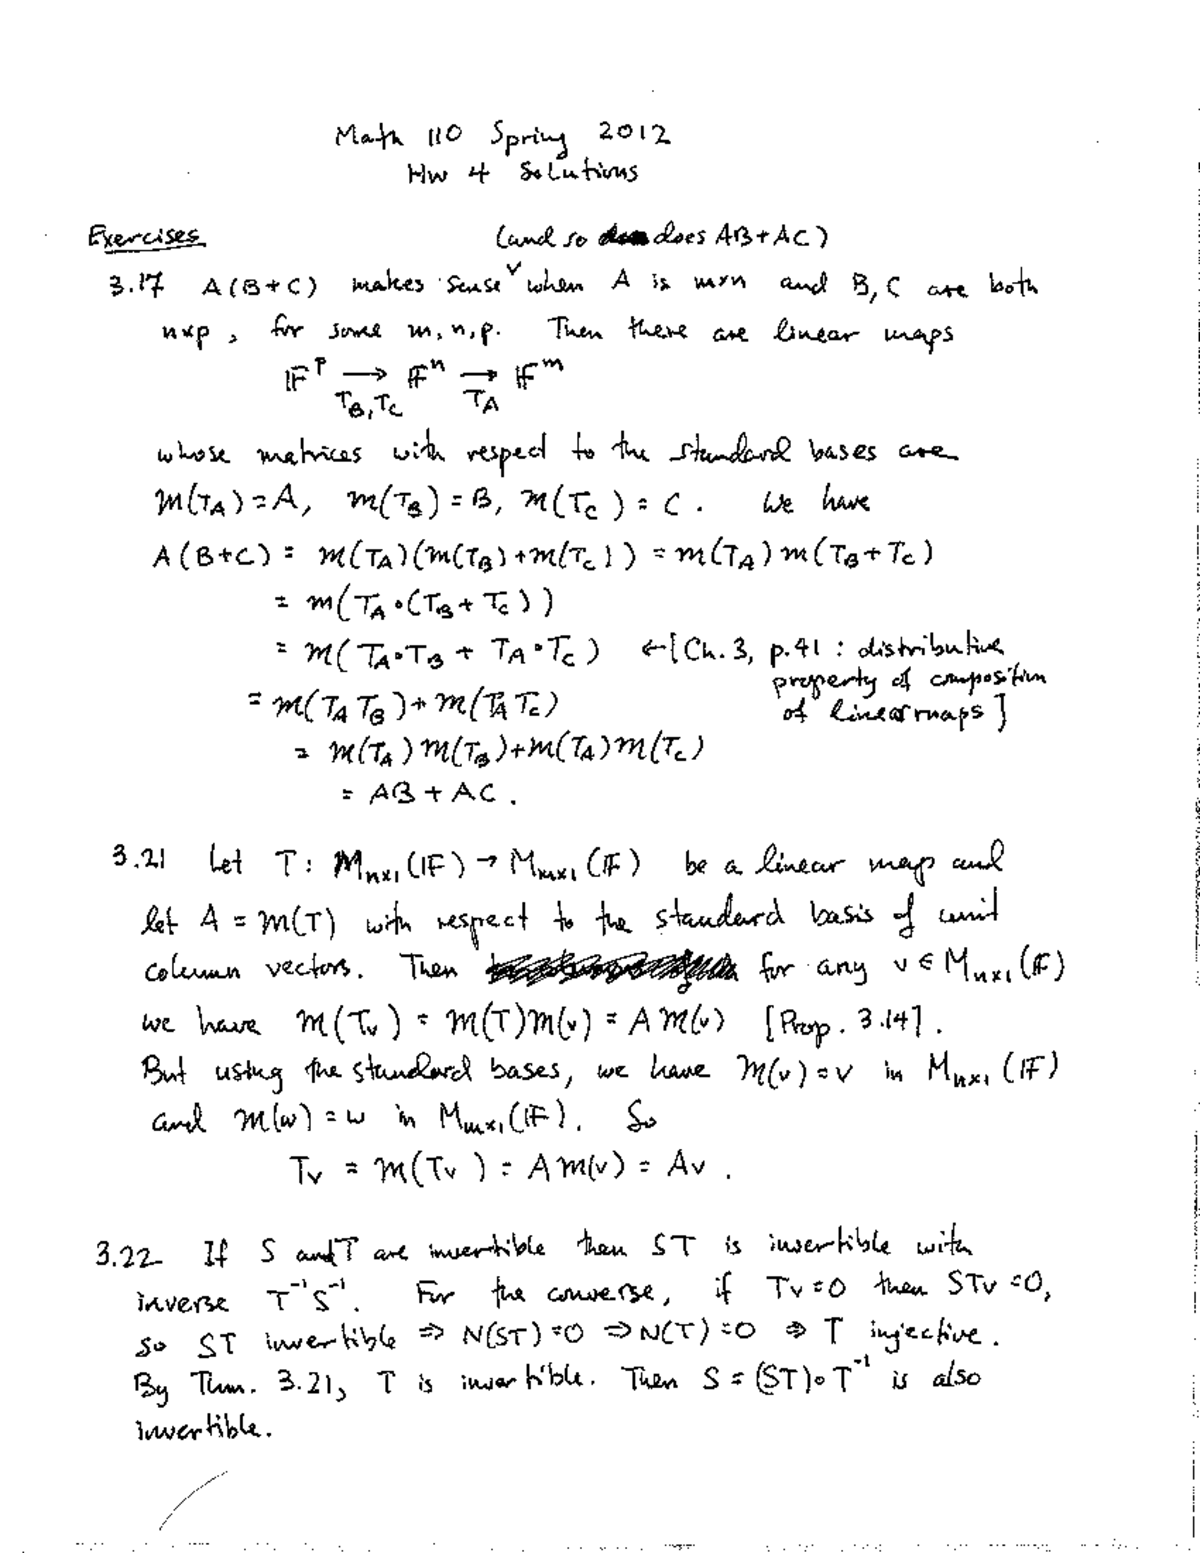 Math 110 Spring 2012
HW 4 Solutions
Exercises
(and so does AB+AC)
3.17 A(B+C) makes sense ∨ when A is m×n and B, C are both
n×p, for some m, n, p. Then there are linear maps
𝔽^p → 𝔽^n → 𝔽^m
T_B, T_C T_A
whose matrices with respect to the standard bases are
m(T_A) = A, m(T_B) = B, m(T_C) = C. We have
A(B+C) = m(T_A)(m(T_B)+m(T_C)) = m(T_A) m(T_B+T_C)
= m(T_A∘(T_B+T_C))
= m(T_A∘T_B + T_A∘T_C) ← [Ch. 3, p. 41 : distributive
property of composition
= m(T_A T_B)+m(T_A T_C) of linear maps]
= m(T_A) m(T_B)+m(T_A) m(T_C)
= AB + AC.
3.21 Let T: M_{n×1}(𝔽) → M_{m×1}(𝔽) be a linear map and
let A = m(T) with respect to the standard basis of unit
column vectors. Then for any v ∈ M_{n×1}(𝔽)
we have m(Tv) = m(T)m(v) = A m(v) [Prop. 3.14].
But using the standard bases, we have m(v)=v in M_{n×1}(𝔽)
and m(w) = w in M_{m×1}(𝔽). So
Tv = m(Tv) = A m(v) = Av.
3.22 If S and T are invertible then ST is invertible with
inverse T⁻¹S⁻¹. For the converse, if Tv=0 then STv=0,
so ST invertible ⇒ N(ST)=0 ⇒ N(T)=0 ⇒ T injective.
By Thm. 3.21, T is invertible. Then S = (ST)∘T⁻¹ is also
invertible.